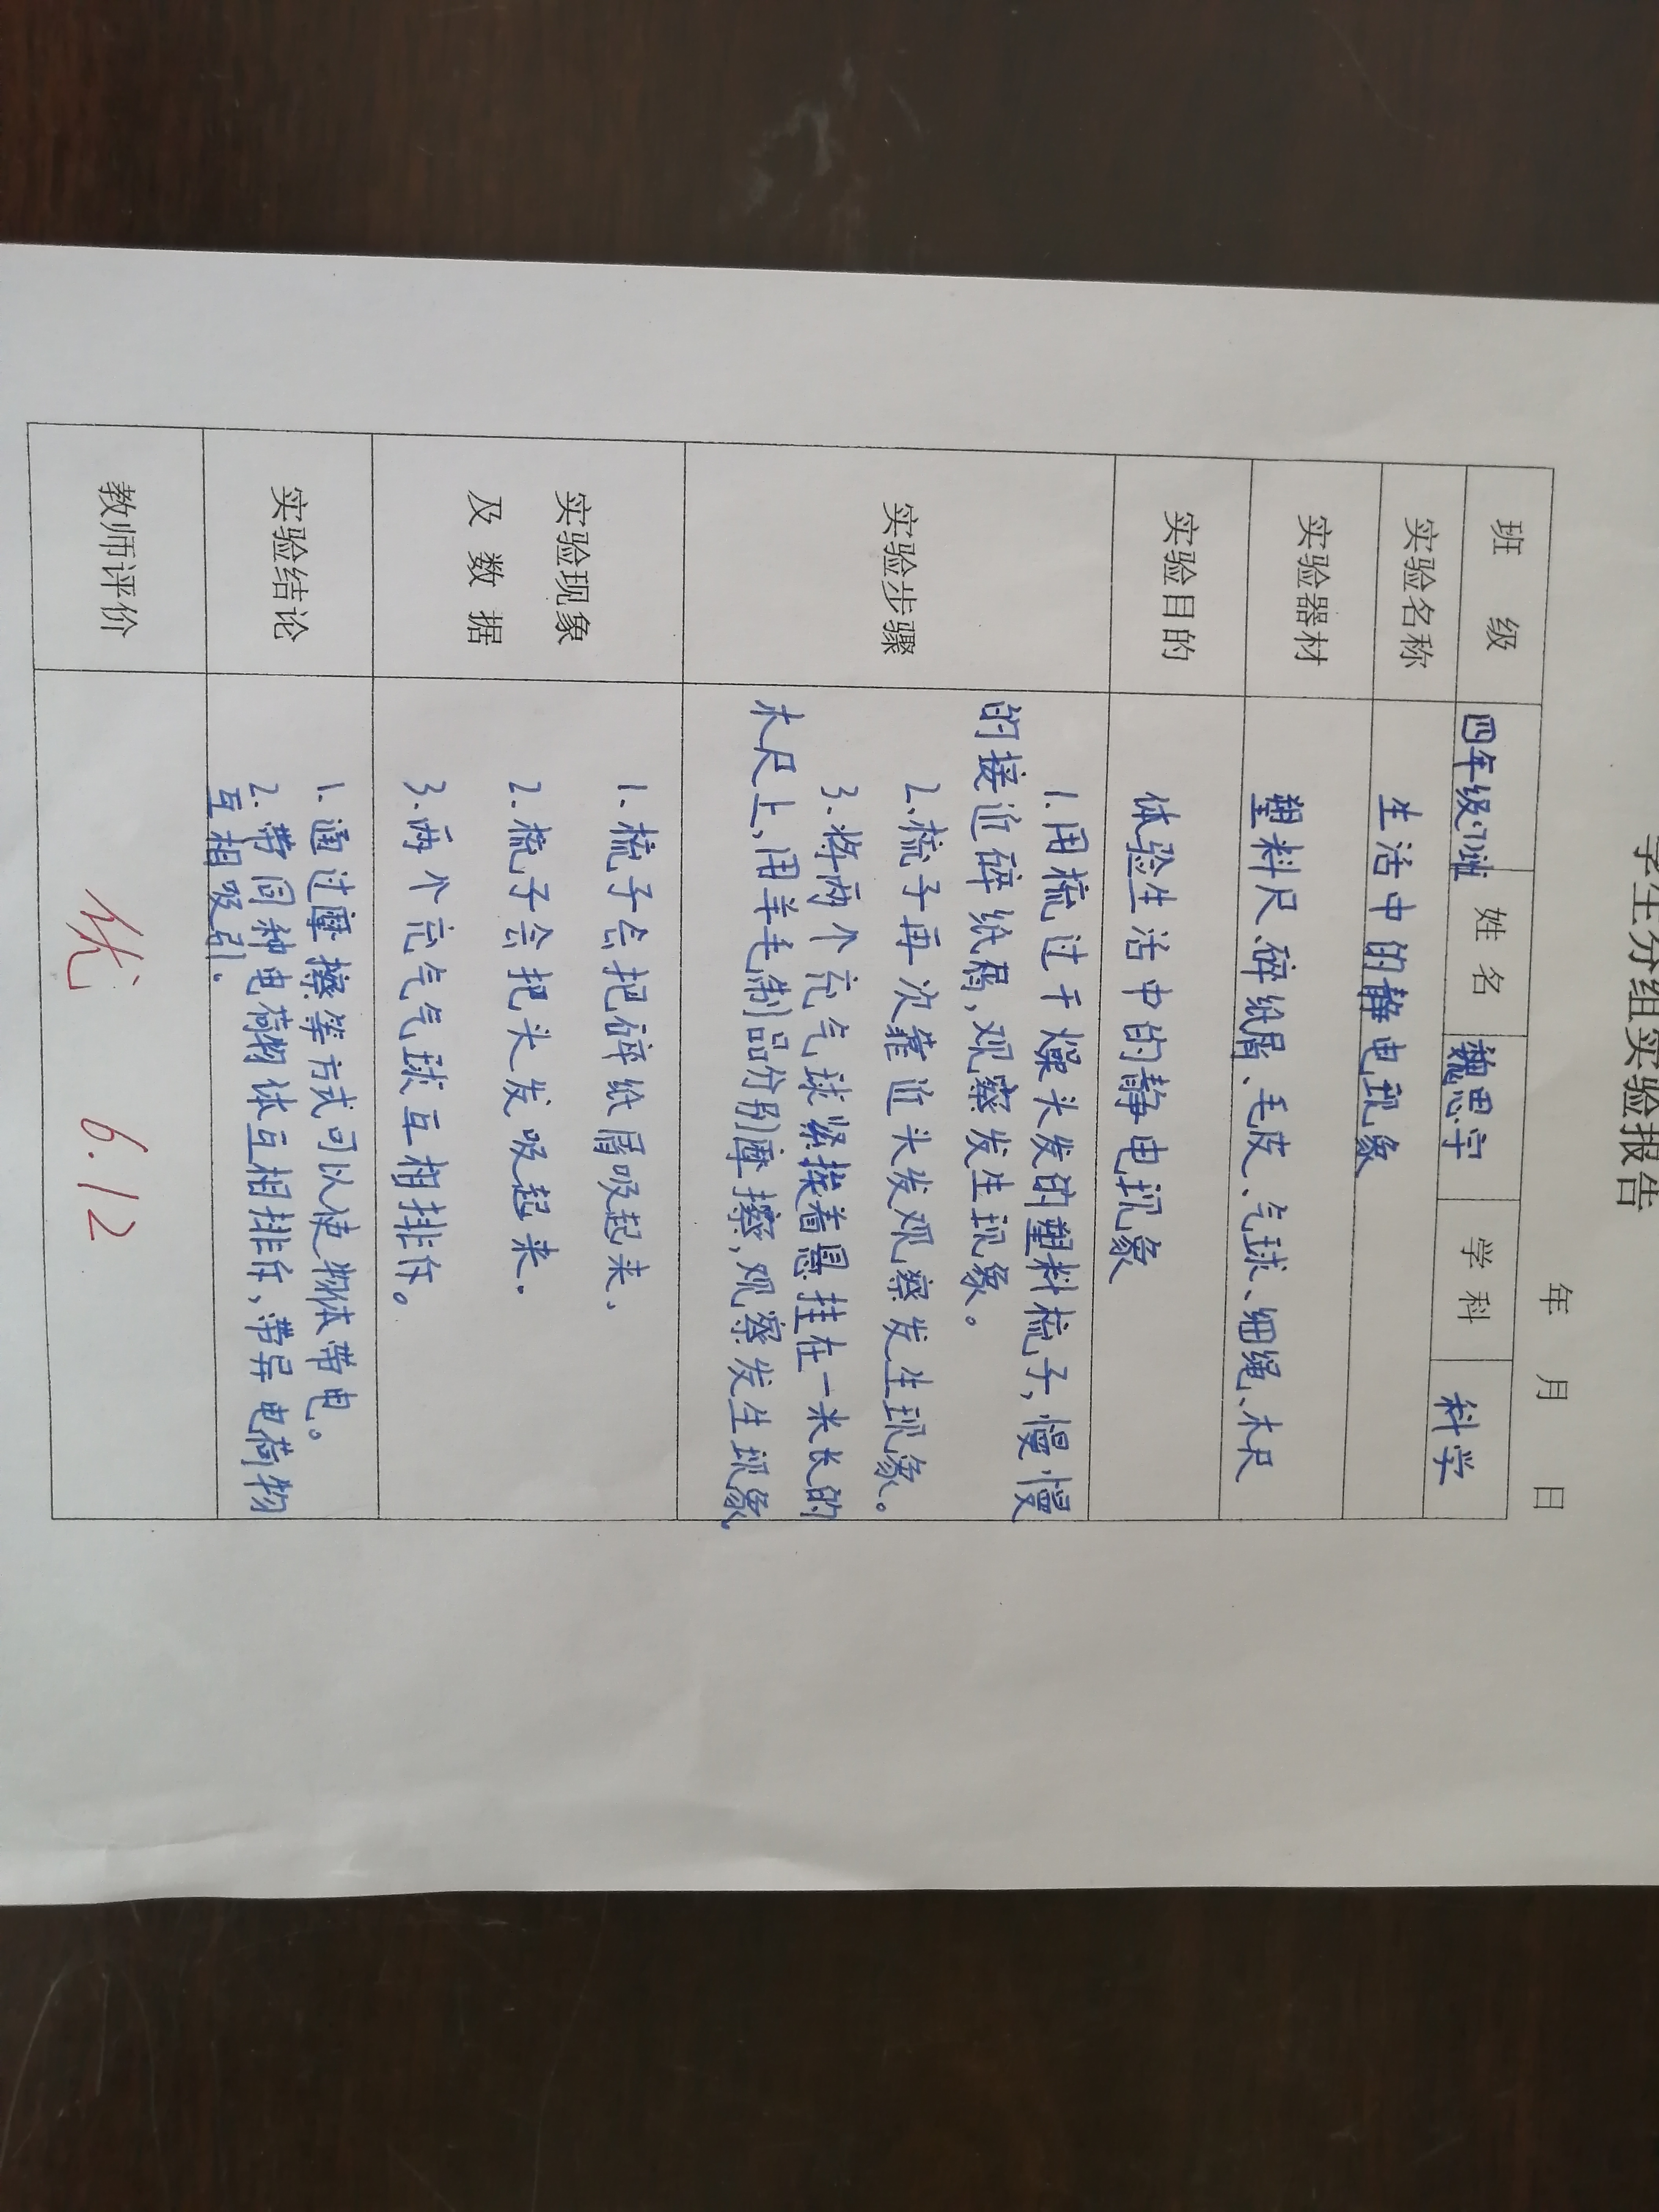 学生分组实验报告
年 月 日
班 级 四年级1班 姓 名 魏思宇 学 科 科学
实验名称 生活中的静电现象
实验器材 塑料尺、碎纸屑、毛皮、气球、细绳、木尺
实验目的 体验生活中的静电现象
实验步骤
1.用梳过干燥头发的塑料梳子,慢慢
的接近碎纸屑,观察发生现象。
2.梳子再次靠近头发观察发生现象。
3.将两个充气球紧挨着悬挂在一米长的
木尺上,用羊毛制品分别摩擦,观察发生现象.
实验现象
及 数 据
1.梳子会把碎纸屑吸起来、
2.梳子会把头发吸起来.
3.两个充气气球互相排斥。
实验结论
1.通过摩擦等方式可以使物体带电。
2.带同种电荷物体互相排斥,带异电荷物
互相吸引.
教师评价
优 6.12